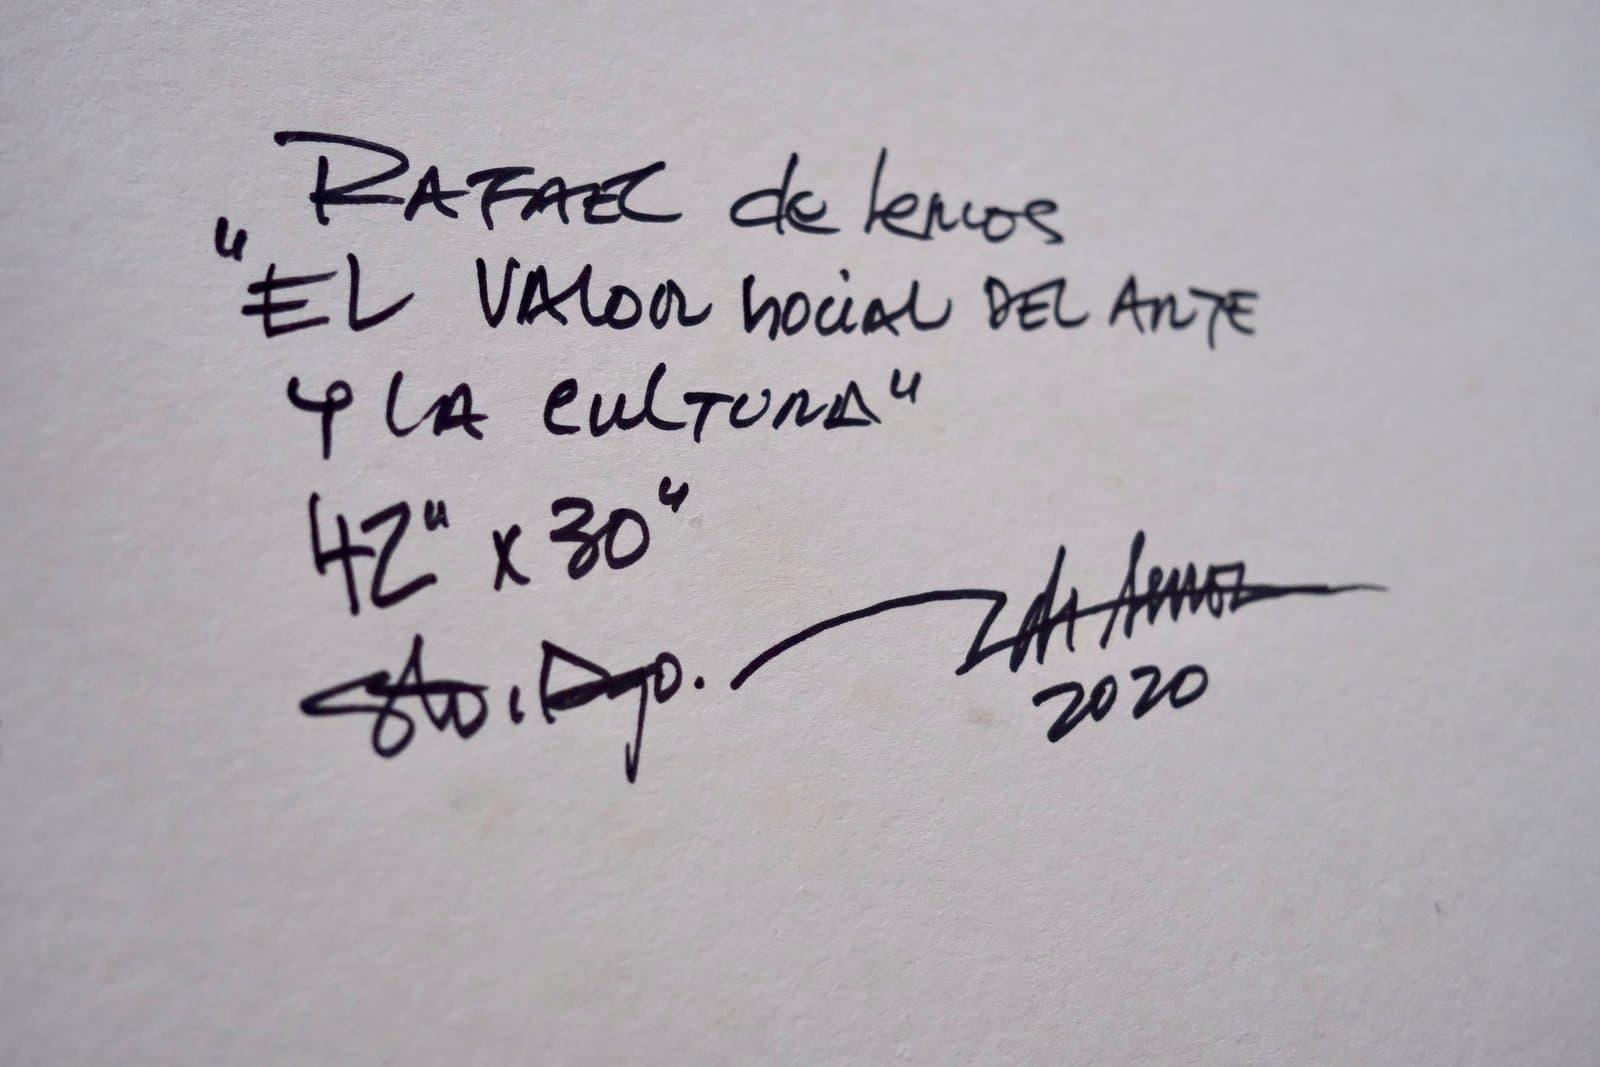 RAFAEL de lemos
"EL VALOR social DEL ARTE
Y LA CULTURA"
42" x 30"
Sto. Dgo.
R de Lemos
2020